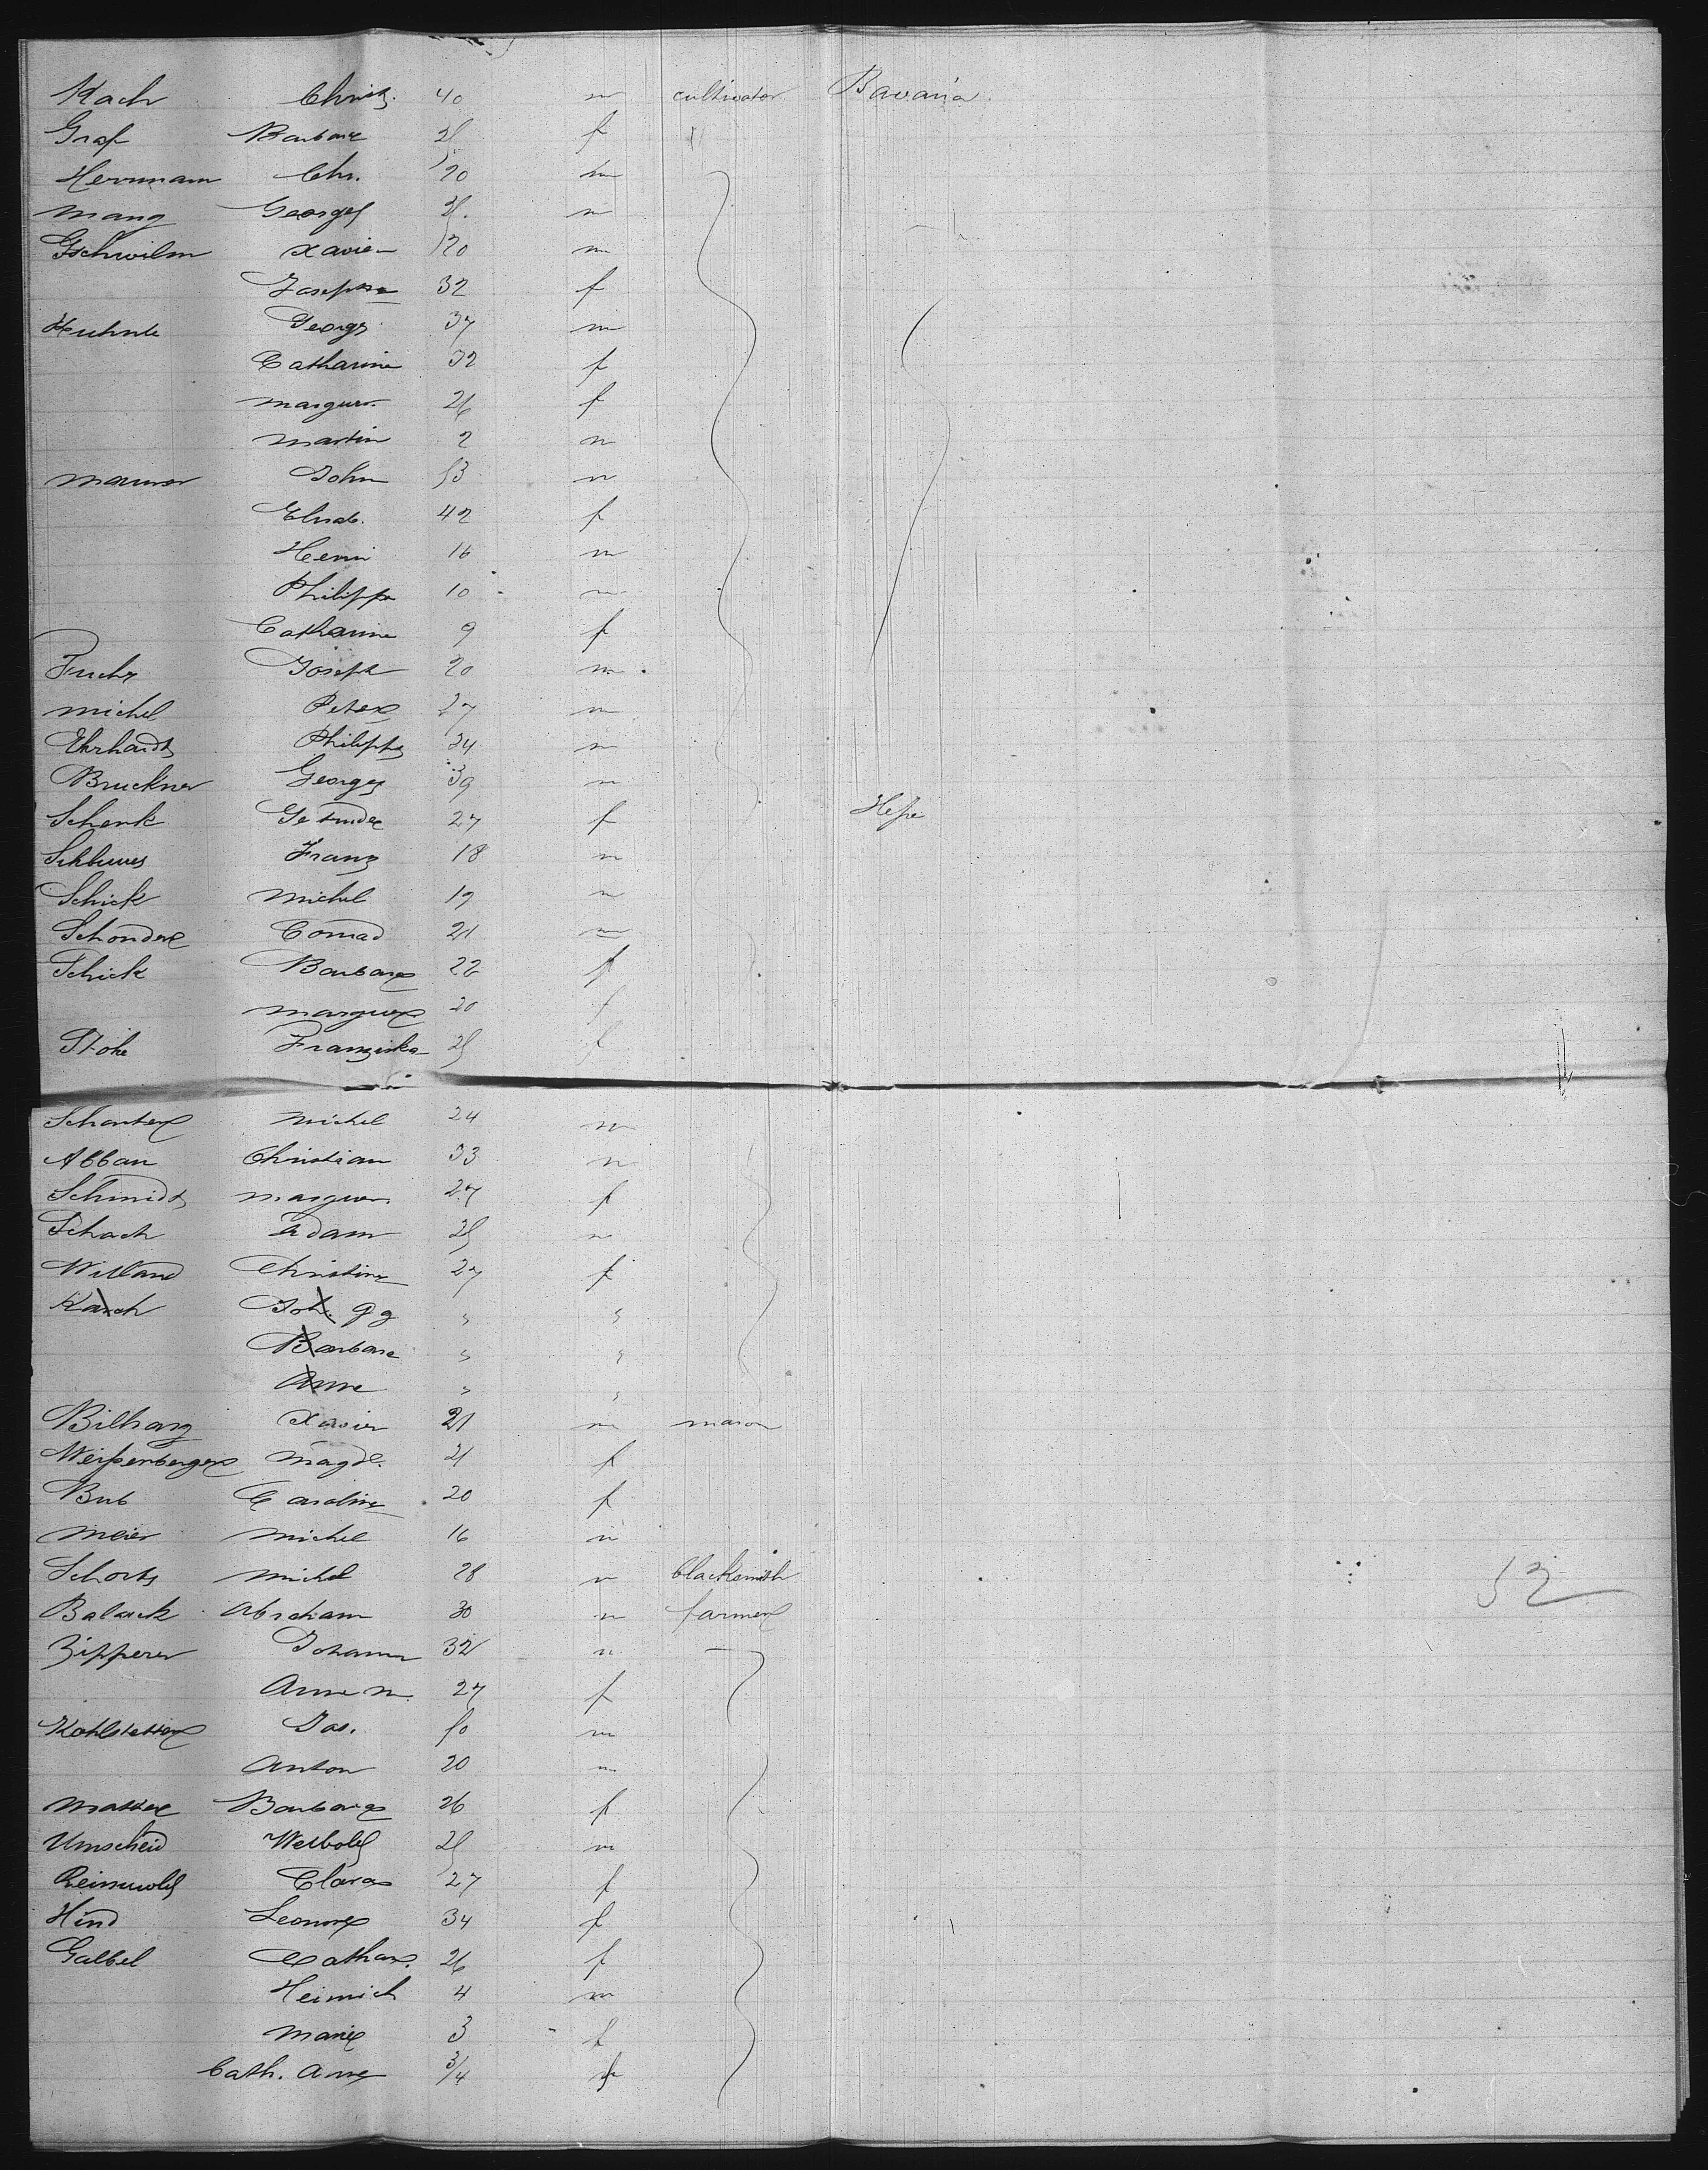 Kach Christ. 40 m cultivator Bavaria
Graf Barbara 25 f "
Herrmann Chr. 20 m
Mang Georges 25. m
Gschwilm Xavier 20 m
Josepha 32 f
Kuhnle George 37 m
Catharine 32 f
Marguer. 26 f
Martin 2 m
Maurer John 53 m
Elisab. 42 f
Henri 16 m
Philippe 10 m
Catharine 9 f
Fuchs Joseph 20 m
Michel Peter 27 m
Ehrhardt Philipp 24 m
Bruckner Georges 39 m
Schenk Gertrude 27 f Hesse
Franz 18 m
Schick Michel 19 m
Schonder Conrad 21 m
Schick Barbara 22 f
Marguer 20 f
Stohe Franziska 25 f
Scharter Michel 24 m
Abban Christian 33 m
Schmidt Marguer. 27 f
Schach Adam 25 m
Willand Christine 27 f
Karch Joh. Gg " "
Barbara " "
Anne " "
Bilharz Xavier 21 m mason
Weißenberger Magd. 21 f
Bub Caroline 20 f
Meier Michel 16 m
Schorts Michel 28 m blacksmith
52
Balack Abraham 30 m farmer
Zipperer Johann 32 m
Anne M. 27 f
Kohlstetter Jos. 50 m
Anton 20 m
Matter Barbara 26 f
Umscheid 25 m
Clara 27 f
Hind Leonore 34 f
Galbel Cathar. 26 f
Heinrich 4 m
Marie 3 f
Cath. Anne 3/4 f